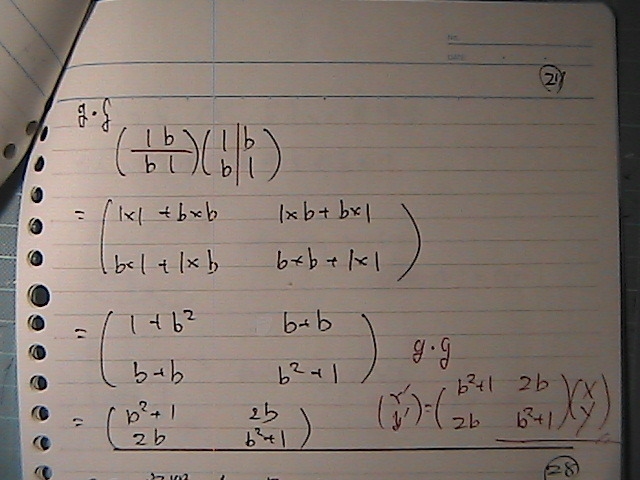 No.
DATE
21
g・f
( 1 b / b 1 ) ( 1 b / b 1 )
= ( 1×1 + b×b 1×b + b×1
b×1 + 1×b b×b + 1×1 )
= ( 1 + b² b+b
b+b b² + 1 )
g・g
= ( b²+1 2b
2b b²+1 )
( x' / y' ) = ( b²+1 2b / 2b b²+1 ) ( x / y )
28